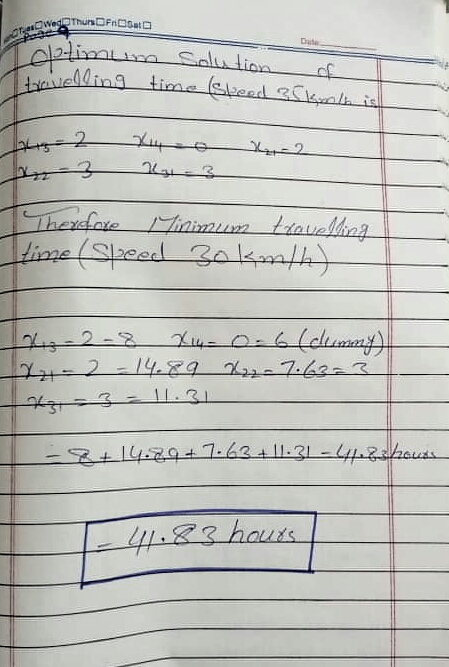 Tues☐Wed☐Thurs☐Fri☐Sat☐
Date:
Page 9
Optimum Solution of
travelling time (Speed 35km/h is
x13 = 2 x14 = 0 x21 = 2
x22 = 3 x31 = 3
Therefore Minimum travelling
time (Speed 30 km/h)
x13 = 2 = 8 x14 = 0 = 6 (dummy)
x21 = 2 = 14.89 x22 = 7.63 = 3
x31 = 3 = 11.31
= 8 + 14.89 + 7.63 + 11.31 = 41.83 hours
= 41.83 hours